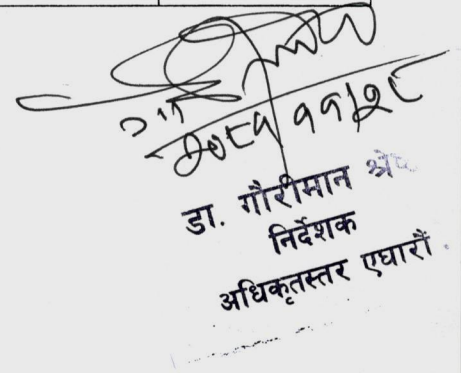 २०८१।११।२८
डा. गौरीमान श्रे
निर्देशक
अधिकृतस्तर एघारौं